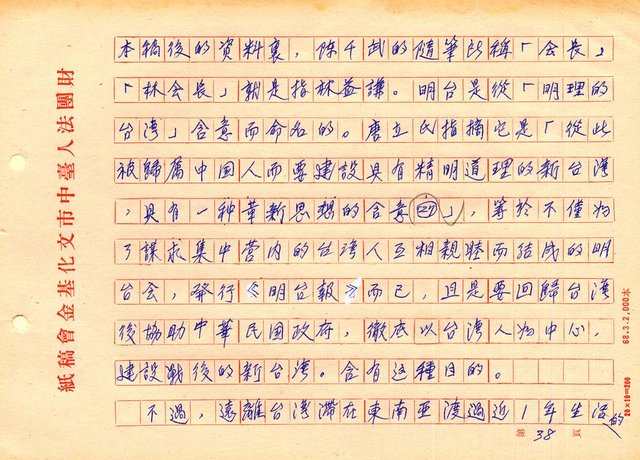 本稿後的資料裏，陈千武的隨筆所稱「会長」
「林会長」就是指林益謙。明台是從「明理的
台湾」含意而命名的。唐立氏指摘它是「從此
被歸属中国人而要建設具有精明道理的新台湾
，具有一种革新思想的含意㉗」，等於不僅为
了謀求集中营内的台湾人互相親睦而结成的明
台会，發行《明台報》而已，且是要回歸台湾
後協助中華民国政府，徹底以台湾人为中心，
建設戰後的新台湾。含有这種目的。
不過，遠離台湾滯在東南亜渡過近1年生活的
第38頁
財團法人臺中市文化基金會稿紙
68.3.2,000本
20×10=200